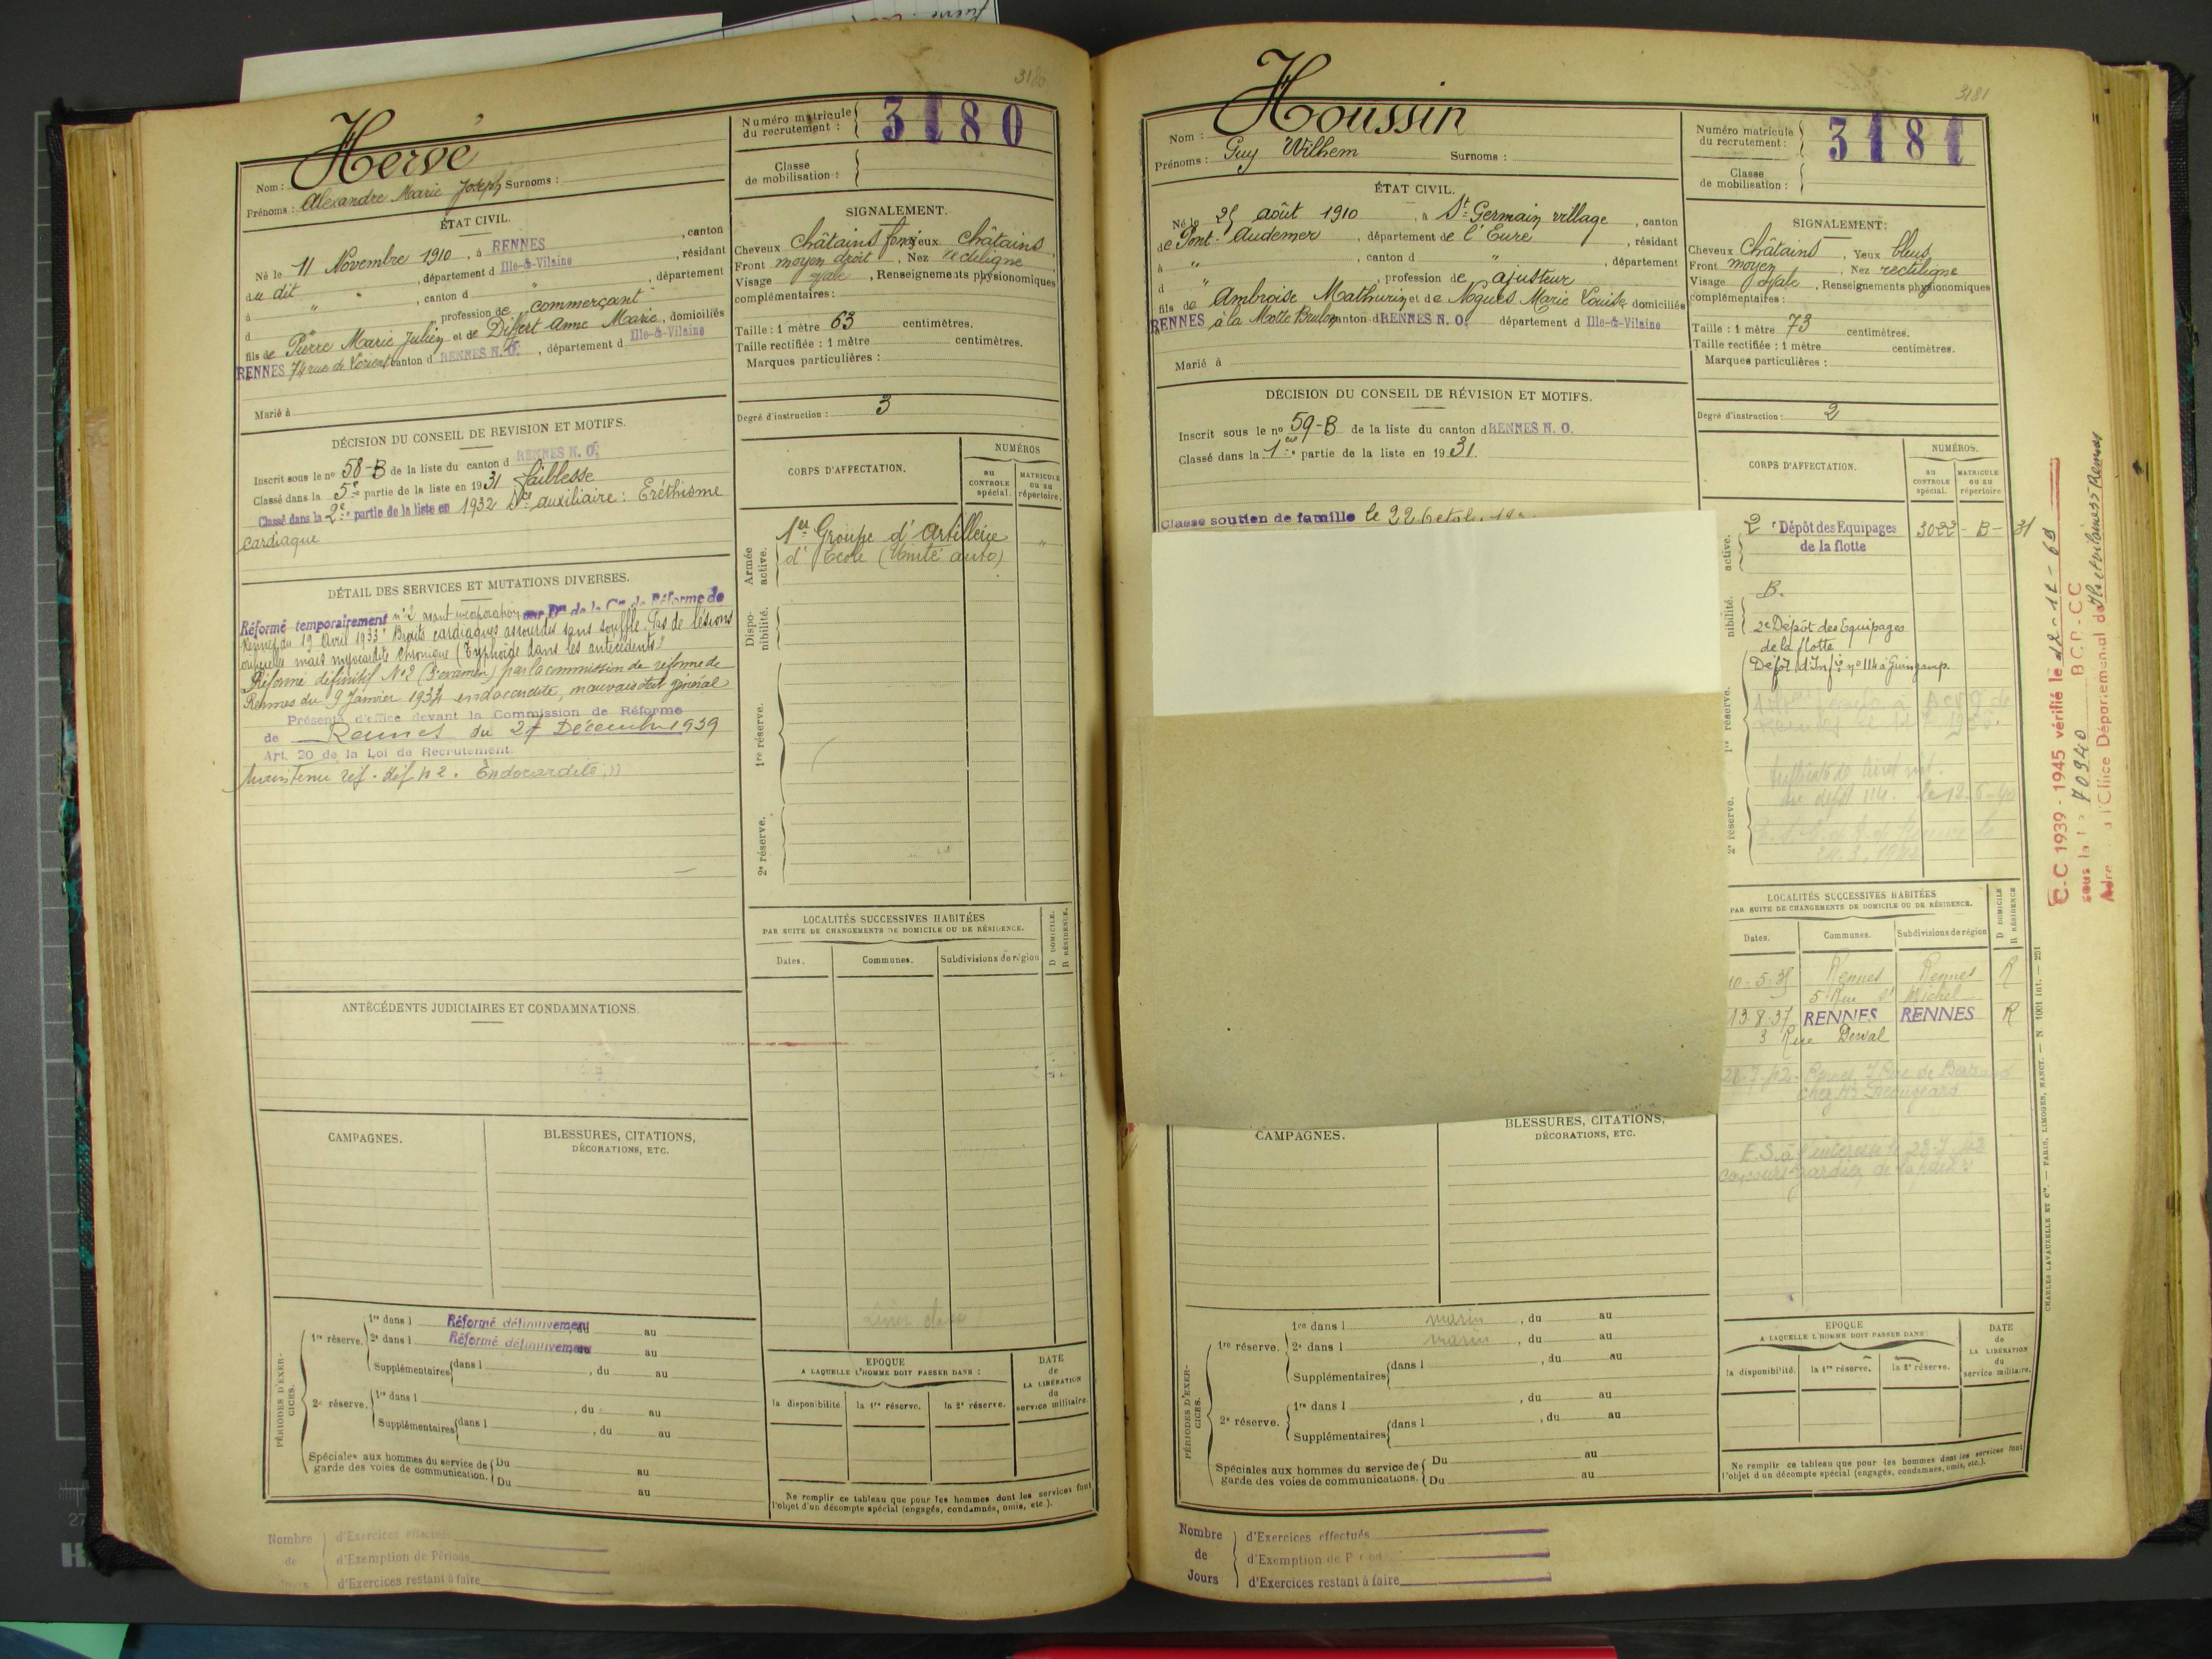 3180
Hervé
Nom :
Prénoms : Alexandre Marie Joseph Surnoms :
Numéro matricule du recrutement : 3180
Classe de mobilisation :
ÉTAT CIVIL.
Né le 11 Novembre 1910, à RENNES, canton
du dit, département d Ille-&-Vilaine, résidant
à ", canton d ", département
d ", profession de commerçant
fils de Pierre Marie Julien et de Differt Anne Marie, domiciliés
RENNES 74 rue de Lorient canton d RENNES N. O., département d Ille-&-Vilaine
Marié à
SIGNALEMENT.
Cheveux Châtains foncé Yeux châtains
Front moyen droit, Nez rectiligne
Visage ovale, Renseignements physionomiques
complémentaires :
Taille : 1 mètre 63 centimètres.
Taille rectifiée : 1 mètre centimètres.
Marques particulières :
Degré d'instruction : 3
DÉCISION DU CONSEIL DE REVISION ET MOTIFS.
Inscrit sous le no 58-B de la liste du canton d RENNES N. O.
Classé dans la 5e partie de la liste en 1931 faiblesse
Classé dans la 2e partie de la liste en 1932 Sce auxiliaire : Eréthisme
cardiaque
DÉTAIL DES SERVICES ET MUTATIONS DIVERSES.
Réformé temporairement n°2 avant incorporation par Don de la Con de Réforme de
Rennes du 19 Avril 1933 "Bruits cardiaques assourdis sans souffle. Pas de lésions
mais myocardite chronique (Typhoïde dans les antécédents"
Réformé définitif N°2 (3e examen) par la commission de réforme de
Rennes du 9 Janvier 1934 endocardite, mauvais état général
Présenté d'office devant la Commission de Réforme
de Rennes du 27 Décembre 1939
Art. 20 de la Loi de Recrutement.
Maintenu réf. déf n 2. Endocardite "
CORPS D'AFFECTATION.
NUMÉROS
au CONTROLE spécial.
MATRICULE ou au répertoire.
Armée active.
1er Groupe d'Artillerie "
d'Ecole (Unité auto)
Disponibilité.
1re réserve.
2e réserve.
LOCALITÉS SUCCESSIVES HABITÉES
PAR SUITE DE CHANGEMENTS DE DOMICILE OU DE RÉSIDENCE.
D DOMICILE.
R RÉSIDENCE.
Dates. Communes. Subdivisions de région
ANTÉCÉDENTS JUDICIAIRES ET CONDAMNATIONS.
CAMPAGNES.
BLESSURES, CITATIONS,
DÉCORATIONS, ETC.
PÉRIODES D'EXERCICES.
1re réserve.
1re dans l Réformé définitivement, du au
2e dans l Réformé définitivement, du au
Supplémentaires dans l , du au
2e réserve.
1re dans l , du au
Supplémentaires dans l , du au
Spéciales aux hommes du service de garde des voies de communication.
Du au
Du au
EPOQUE
A LAQUELLE L'HOMME DOIT PASSER DANS :
la disponibilité. la 1re réserve. la 2e réserve.
DATE de LA LIBÉRATION du service militaire.
Ne remplir ce tableau que pour les hommes dont les services font
l'objet d'un décompte spécial (engagés, condamnés, omis, etc.).
Nombre de Jours
d'Exercices effectués
d'Exemption de Période
d'Exercices restant à faire
3181
Houssin
Nom :
Prénoms : Guy Wilhem Surnoms :
Numéro matricule du recrutement : 3181
Classe de mobilisation :
ÉTAT CIVIL.
Né le 25 août 1910, à St Germain village, canton
de Pont-Audemer, département de l'Eure, résidant
à ", canton d ", département
d ", profession de ajusteur
fils de Ambroise Mathurin et de Nogues Marie Louise domiciliés
RENNES à la Motte Brulon canton d RENNES N. O. département d Ille-&-Vilaine
Marié à
SIGNALEMENT:
Cheveux Châtains, Yeux bleus
Front moyen, Nez rectiligne
Visage ovale, Renseignements physionomiques
complémentaires :
Taille : 1 mètre 73 centimètres.
Taille rectifiée : 1 mètre centimètres.
Marques particulières :
Degré d'instruction : 2
DÉCISION DU CONSEIL DE RÉVISION ET MOTIFS.
Inscrit sous le no 59-B de la liste du canton d RENNES N. O.
Classé dans la 1ere partie de la liste en 1931.
Classé soutien de famille le 22
CORPS D'AFFECTATION.
NUMÉROS.
au CONTROLE spécial.
MATRICULE ou au répertoire
active.
2e Dépôt des Equipages 3022 - B - 31
de la flotte
nibilité.
B.
2e Dépôt des Equipages
de la flotte
Dépôt d'Infie n° 114 à Guingamp.
1re réserve.
2e réserve.
du dépôt 114. le 12-6-40
LOCALITÉS SUCCESSIVES HABITÉES
PAR SUITE DE CHANGEMENTS DE DOMICILE OU DE RÉSIDENCE.
D DOMICILE
R RÉSIDENCE
Dates. Communes. Subdivisions de région
10-5-35 Rennes Rennes R
5 Rue St Michel
13.8.37 RENNES RENNES R
3 Rue Derval
28-7-42 Rennes 7 Rue de Bertrand
chez
28-7-42
concours gardien de la paix
CAMPAGNES.
BLESSURES, CITATIONS,
DÉCORATIONS, ETC.
PÉRIODES D'EXERCICES.
1re réserve.
1re dans l marin, du au
2e dans l marin, du au
Supplémentaires dans l , du au
2e réserve.
1re dans l , du au
Supplémentaires dans l , du au
Spéciales aux hommes du service de garde des voies de communications.
Du au
Du au
EPOQUE
A LAQUELLE L'HOMME DOIT PASSER DANS :
la disponibilité. la 1re réserve. la 2e réserve.
DATE de LA LIBÉRATION du service militaire.
Ne remplir ce tableau que pour les hommes dont les services font
l'objet d'un décompte spécial (engagés, condamnés, omis, etc.).
Nombre de Jours
d'Exercices effectués
d'Exemption de Période
d'Exercices restant à faire
CHARLES LAVAUZELLE ET Cie. — PARIS, LIMOGES, NANCY. — N 1001 int. — 251
C.C 1939-1945 vérifié le 12-69
sous le n° 70940 B.C.P.-CC
à l'Office Départemental de Rennes